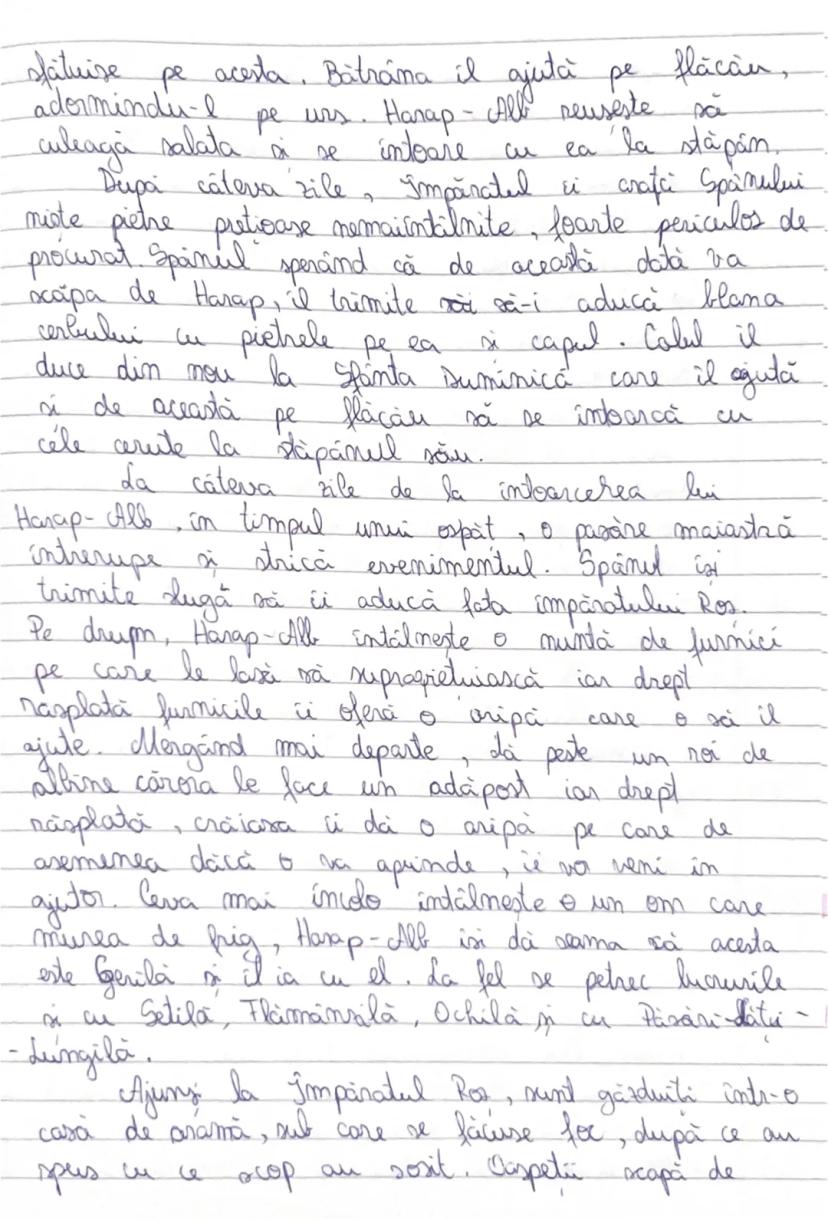 sfătuise pe acesta. Bătrâna îl ajută pe flăcău,
adormindu-l pe urs. Harap-Alb reușește să
culeagă salata și se întoarce cu ea la stăpân.
După câteva zile, Împăratul îi arată Spânului
niște pietre prețioase nemaiîntâlnite, foarte periculos de
procurat. Spânul sperând că de această dată va
scăpa de Harap, îl trimite să-i aducă blana
cerbului cu pietrele pe ea și capul. Calul îl
duce din nou la Sfânta Duminică care îl ajută
și de această pe flăcău să se întoarcă cu
cele cerute la stăpânul său.
La câteva zile de la întoarcerea lui
Harap-Alb, în timpul unui ospăt, o pasăre maiastră
întrerupe și strică evenimentul. Spânul își
trimite slugă să îi aducă fata împăratului Roș.
Pe drum, Harap-Alb întâlnește o nuntă de furnici
pe care le lasă să supraviețuiască iar drept
răsplată furnicile îi oferă o aripă care o să îl
ajute. Mergând mai departe, dă peste un roi de
albine cărora le face un adăpost iar drept
răsplată, crăiasa îi dă o aripă pe care de
asemenea dăcă o va aprinde, îi va veni în
ajutor. Ceva mai încolo întâlnește un om care
murea de frig, Harap-Alb își dă seama că acesta
este Gerilă și îl ia cu el. La fel se petrec lucrurile
și cu Setilă, Flămânzilă, Ochilă și cu Păsări-Lăți-
-Lungilă.
Ajunși la Împăratul Roș, sunt găzduiți într-o
casă de aramă, sub care se făcuse foc, după ce au
spus cu ce scop au sosit. Oaspeții scapă de